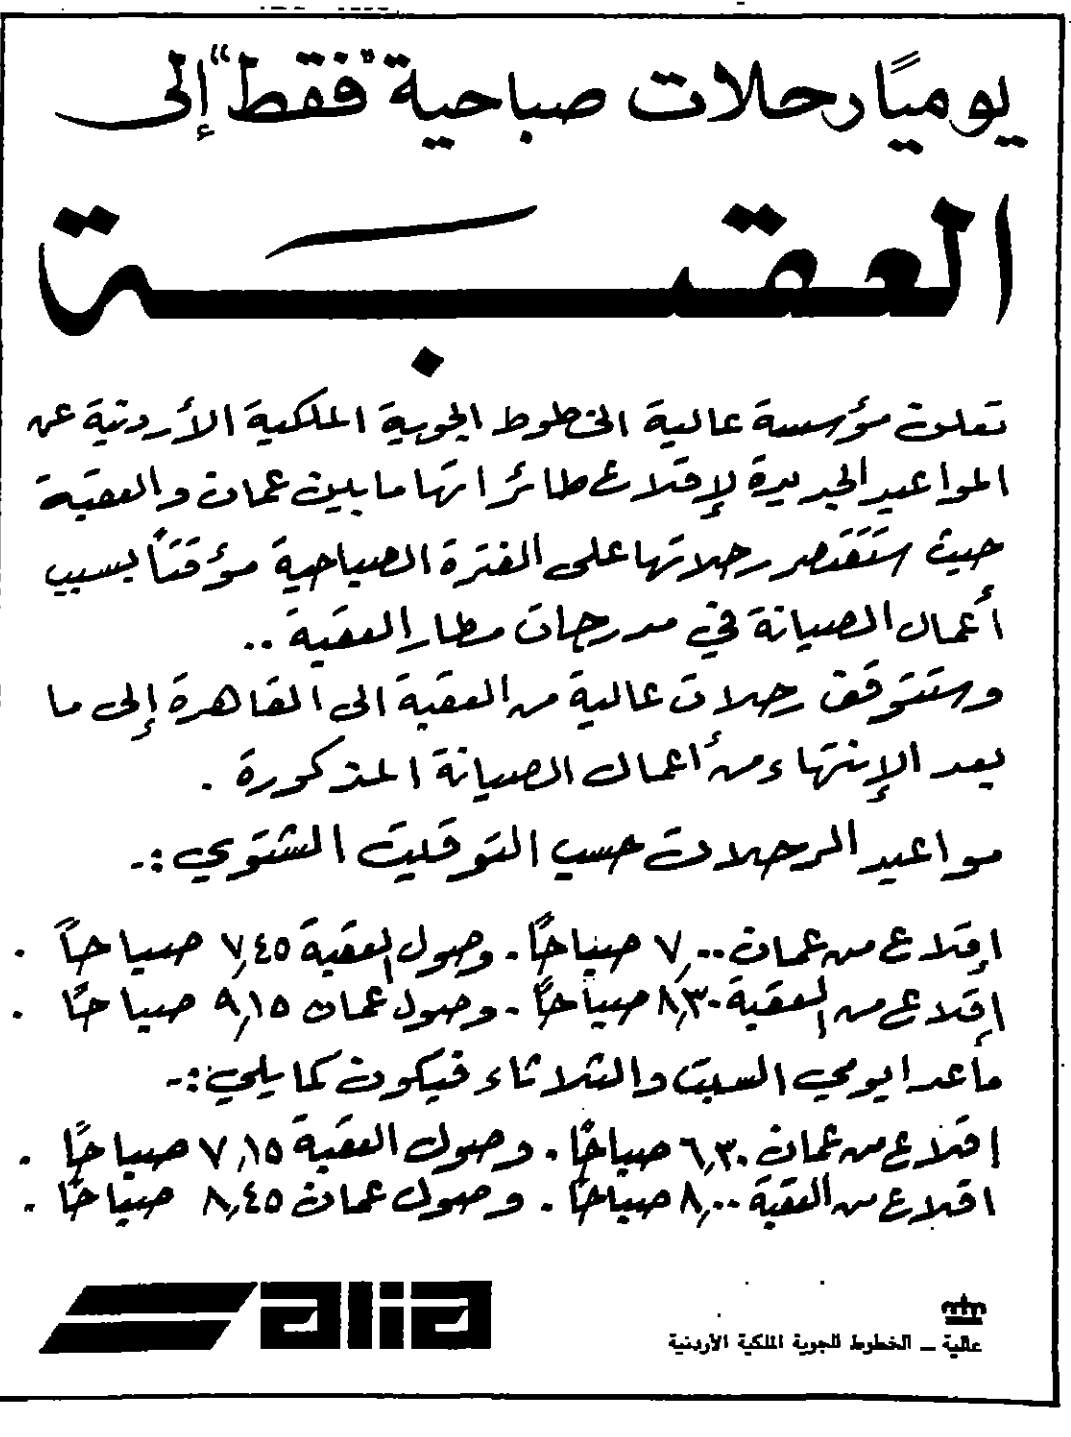 يومياً رحلات صباحية "فقط" إلى
العقبة
تعلن مؤسسة عالية الخطوط الجوية الملكية الأردنية عن
المواعيد الجديدة لإقلاع طائراتها ما بين عمان والعقبة
حيث ستَقتصر رحلاتها على الفترة الصباحية مؤقتاً بسبب
أعمال الصيانة في مدرجات مطار العقبة ..
وستتوقف رحلات عالية من العقبة الى القاهرة إلى ما
بعد الإنتهاء من أعمال الصيانة المذكورة .
مواعيد الرحلات حسب التوقيت الشتوي :-
إقلاع من عمان ٧,٠٠ صباحاً . وصول العقبة ٧,٤٥ صباحاً .
إقلاع من العقبة ٨,٣٠ صباحاً . وصول عمان ٩,١٥ صباحاً .
ما عدا يومي السبت والثلاثاء فيكون كما يلي :-
إقلاع من عمان ٦,٣٠ صباحاً . وصول العقبة ٧,١٥ صباحاً .
اقلاع من العقبة ٨,٠٠ صباحاً . وصول عمان ٨,٤٥ صباحاً .
alia
عالية – الخطوط الجوية الملكية الأردنية